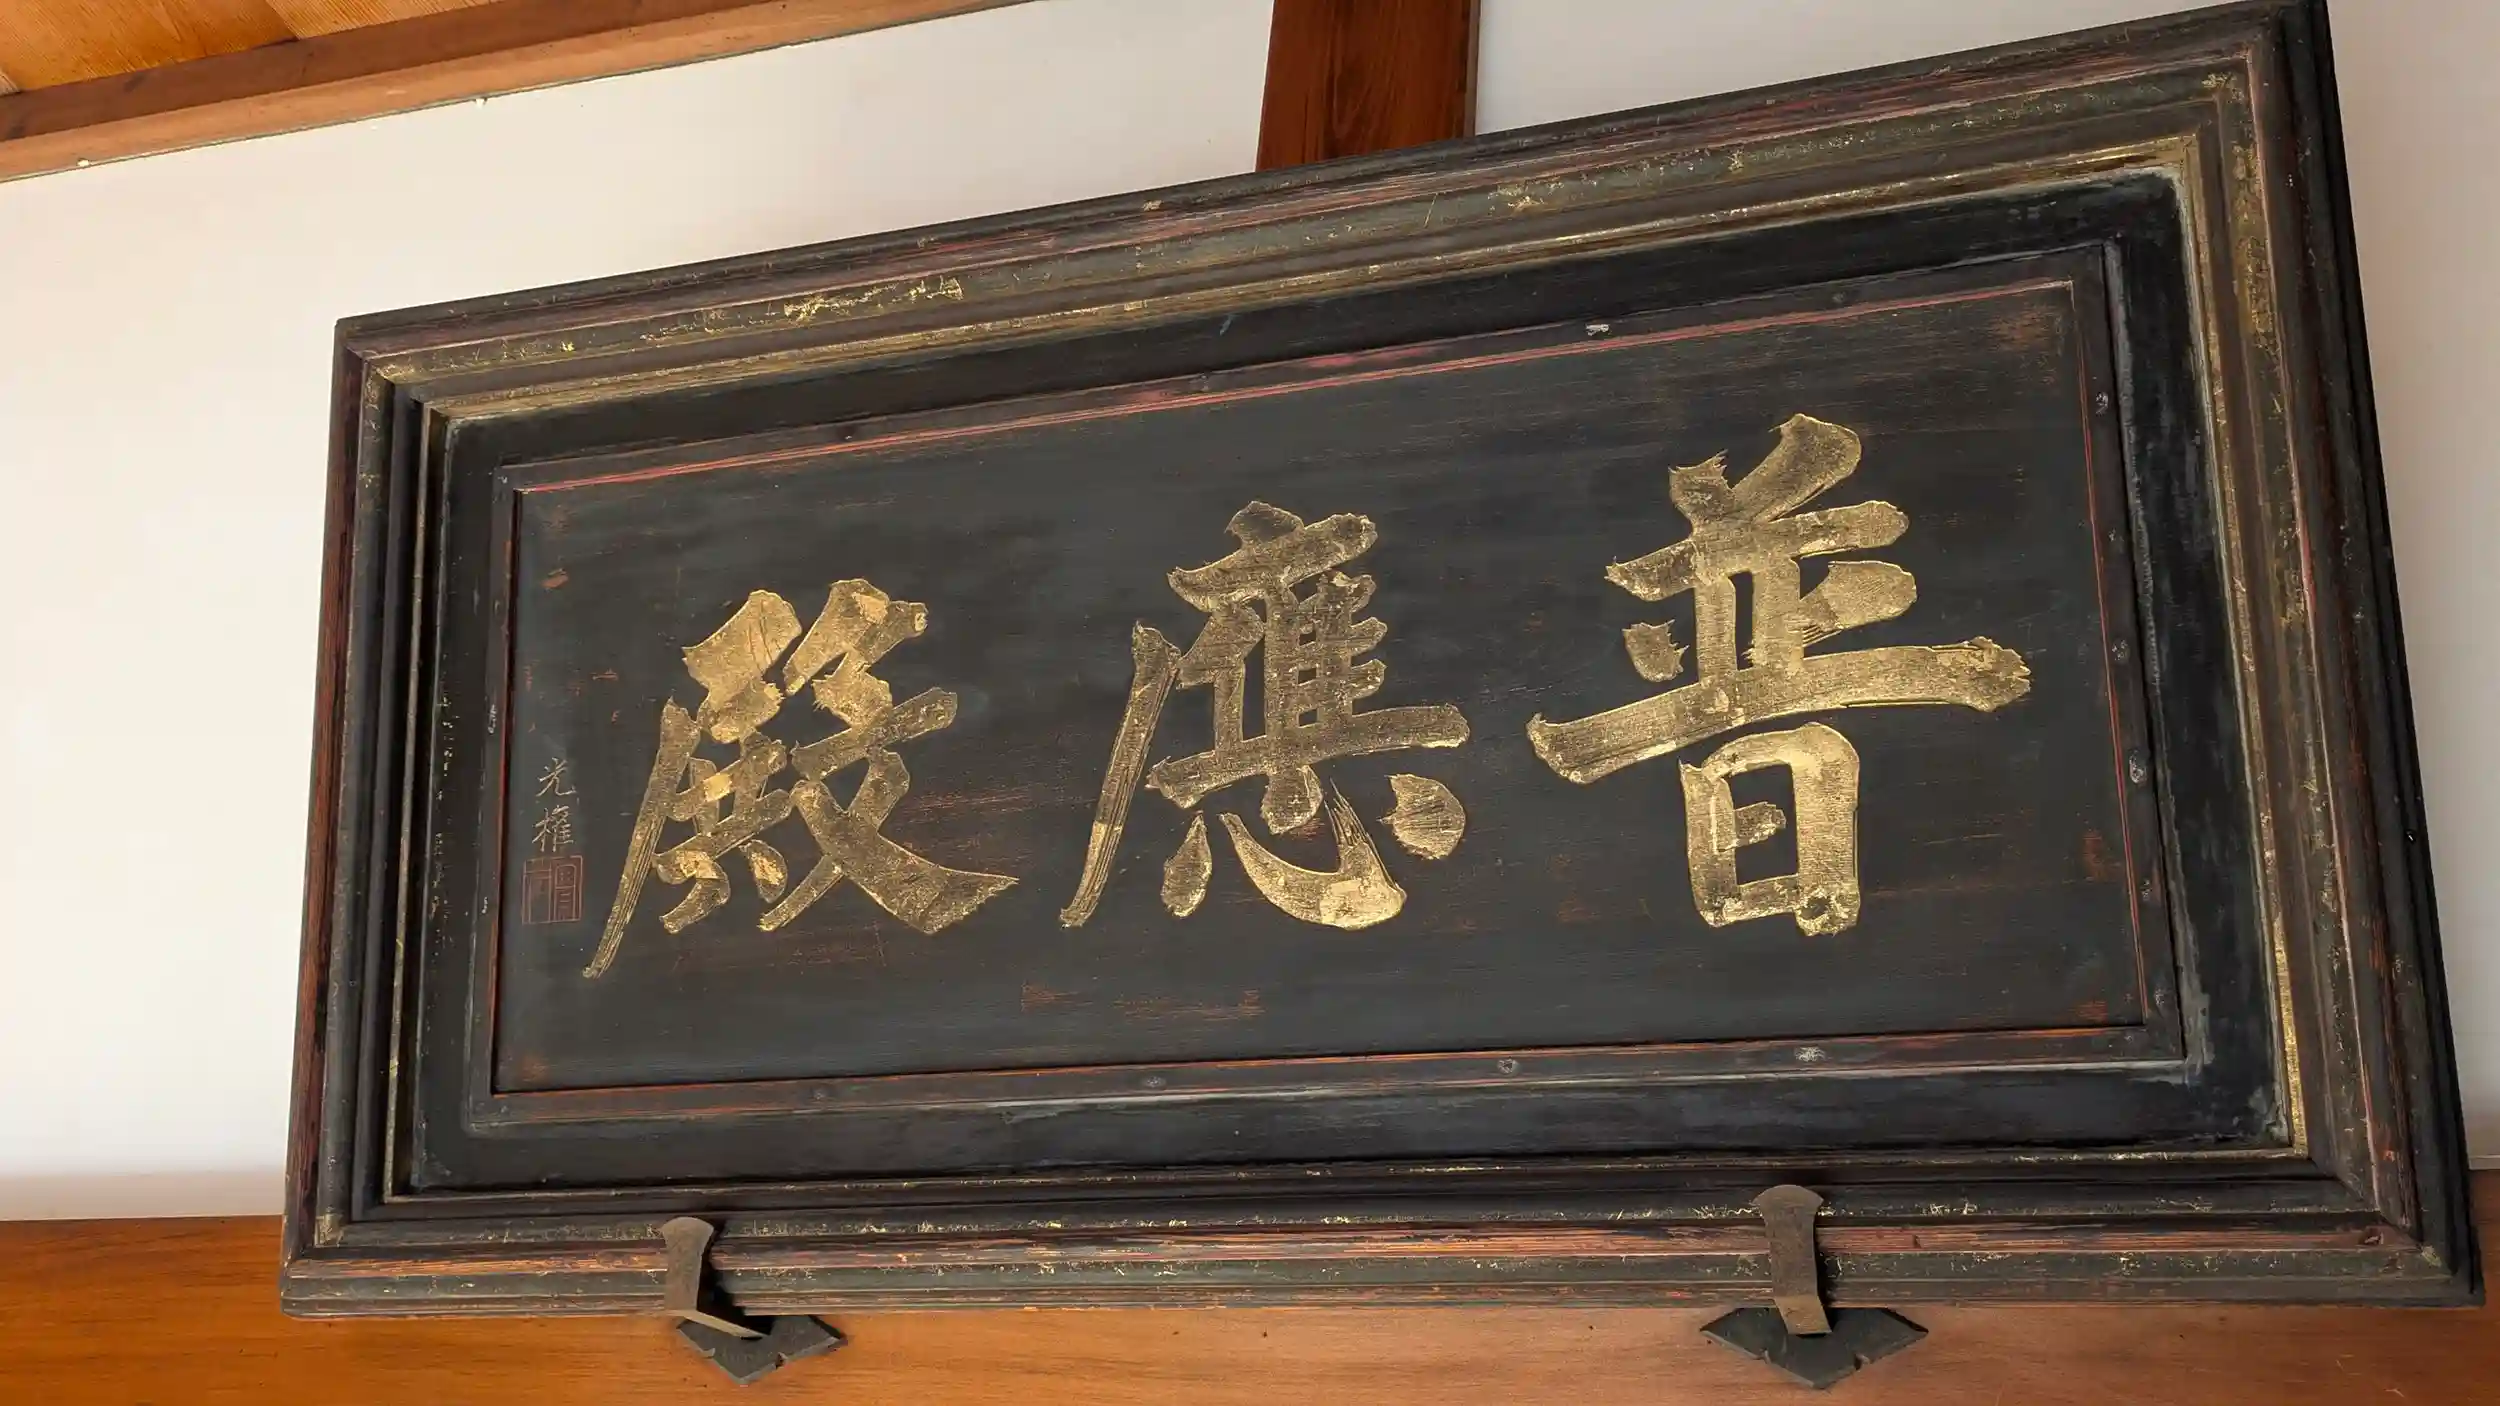 普應殿
光㩁